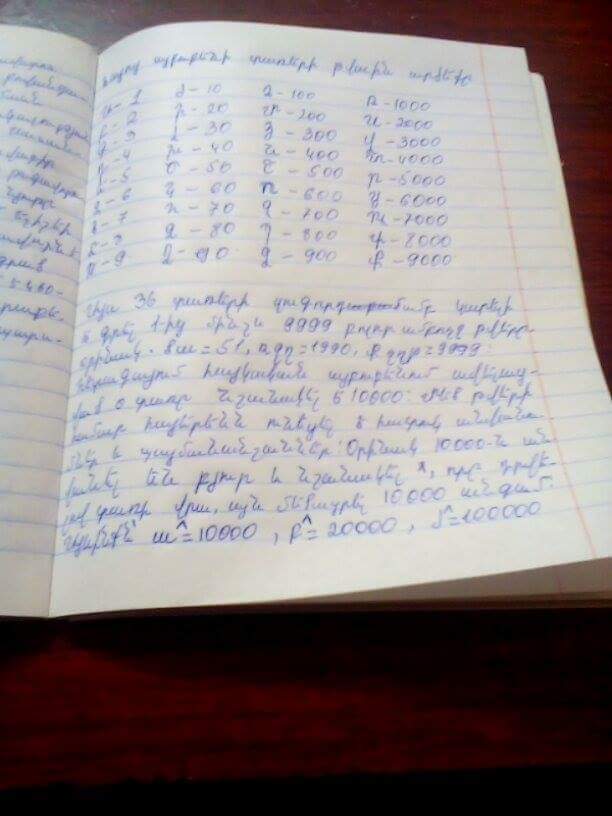 Հայոց այբուբենի տառերի թվային արժեքը
ա - 1 ժ - 10 ճ - 100 ռ - 1000
բ - 2 ի - 20 մ - 200 ս - 2000
գ - 3 լ - 30 յ - 300 վ - 3000
դ - 4 խ - 40 ն - 400 տ - 4000
ե - 5 ծ - 50 շ - 500 ր - 5000
զ - 6 կ - 60 ո - 600 ց - 6000
է - 7 հ - 70 չ - 700 ւ - 7000
ը - 8 ձ - 80 պ - 800 փ - 8000
թ - 9 ղ - 90 ջ - 900 ք - 9000
Այս 36 տառերի կարելի
է գրել 1-ից մինչև 9999 բոլոր ամբողջ թվերը
օրինակ. ծա = 51, ռջղ = 1990, քջղթ = 9999:
Հետագայում հայկական այբուբենում ավելաց-
ված օ տառը նշանակել է 10000: Մեծ թվերի
համար հայերենն ունեցել է հատուկ անվանու-
մներ և պայմանանշաններ: Օրինակ 10000-ն ան-
վանել են բյուր և նշանակել ^, որը դրվե-
լով տառի վրա, այն մեծացրել 10000 անգամ.
այսինքն՝ ա^ = 10000, բ^ = 20000, ժ^ = 100000